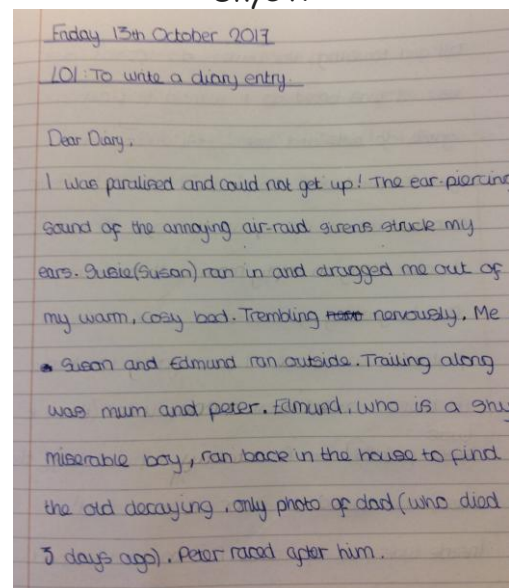 Friday 13th October 2017
LO1: To write a diary entry.
Dear Diary,
I was paralised and could not get up! The ear-piercing
sound of the annoying air-raid sirens struck my
ears. Susie(Susan) ran in and dragged me out of
my warm, cosy bed. Trembling nervously, Me
Susan and Edmund ran outside. Trailing along
was mum and peter. Edmund, who is a shy
miserable boy, ran back in the house to find
the old decaying, only photo of dad (who died
days ago). Peter raced after him.